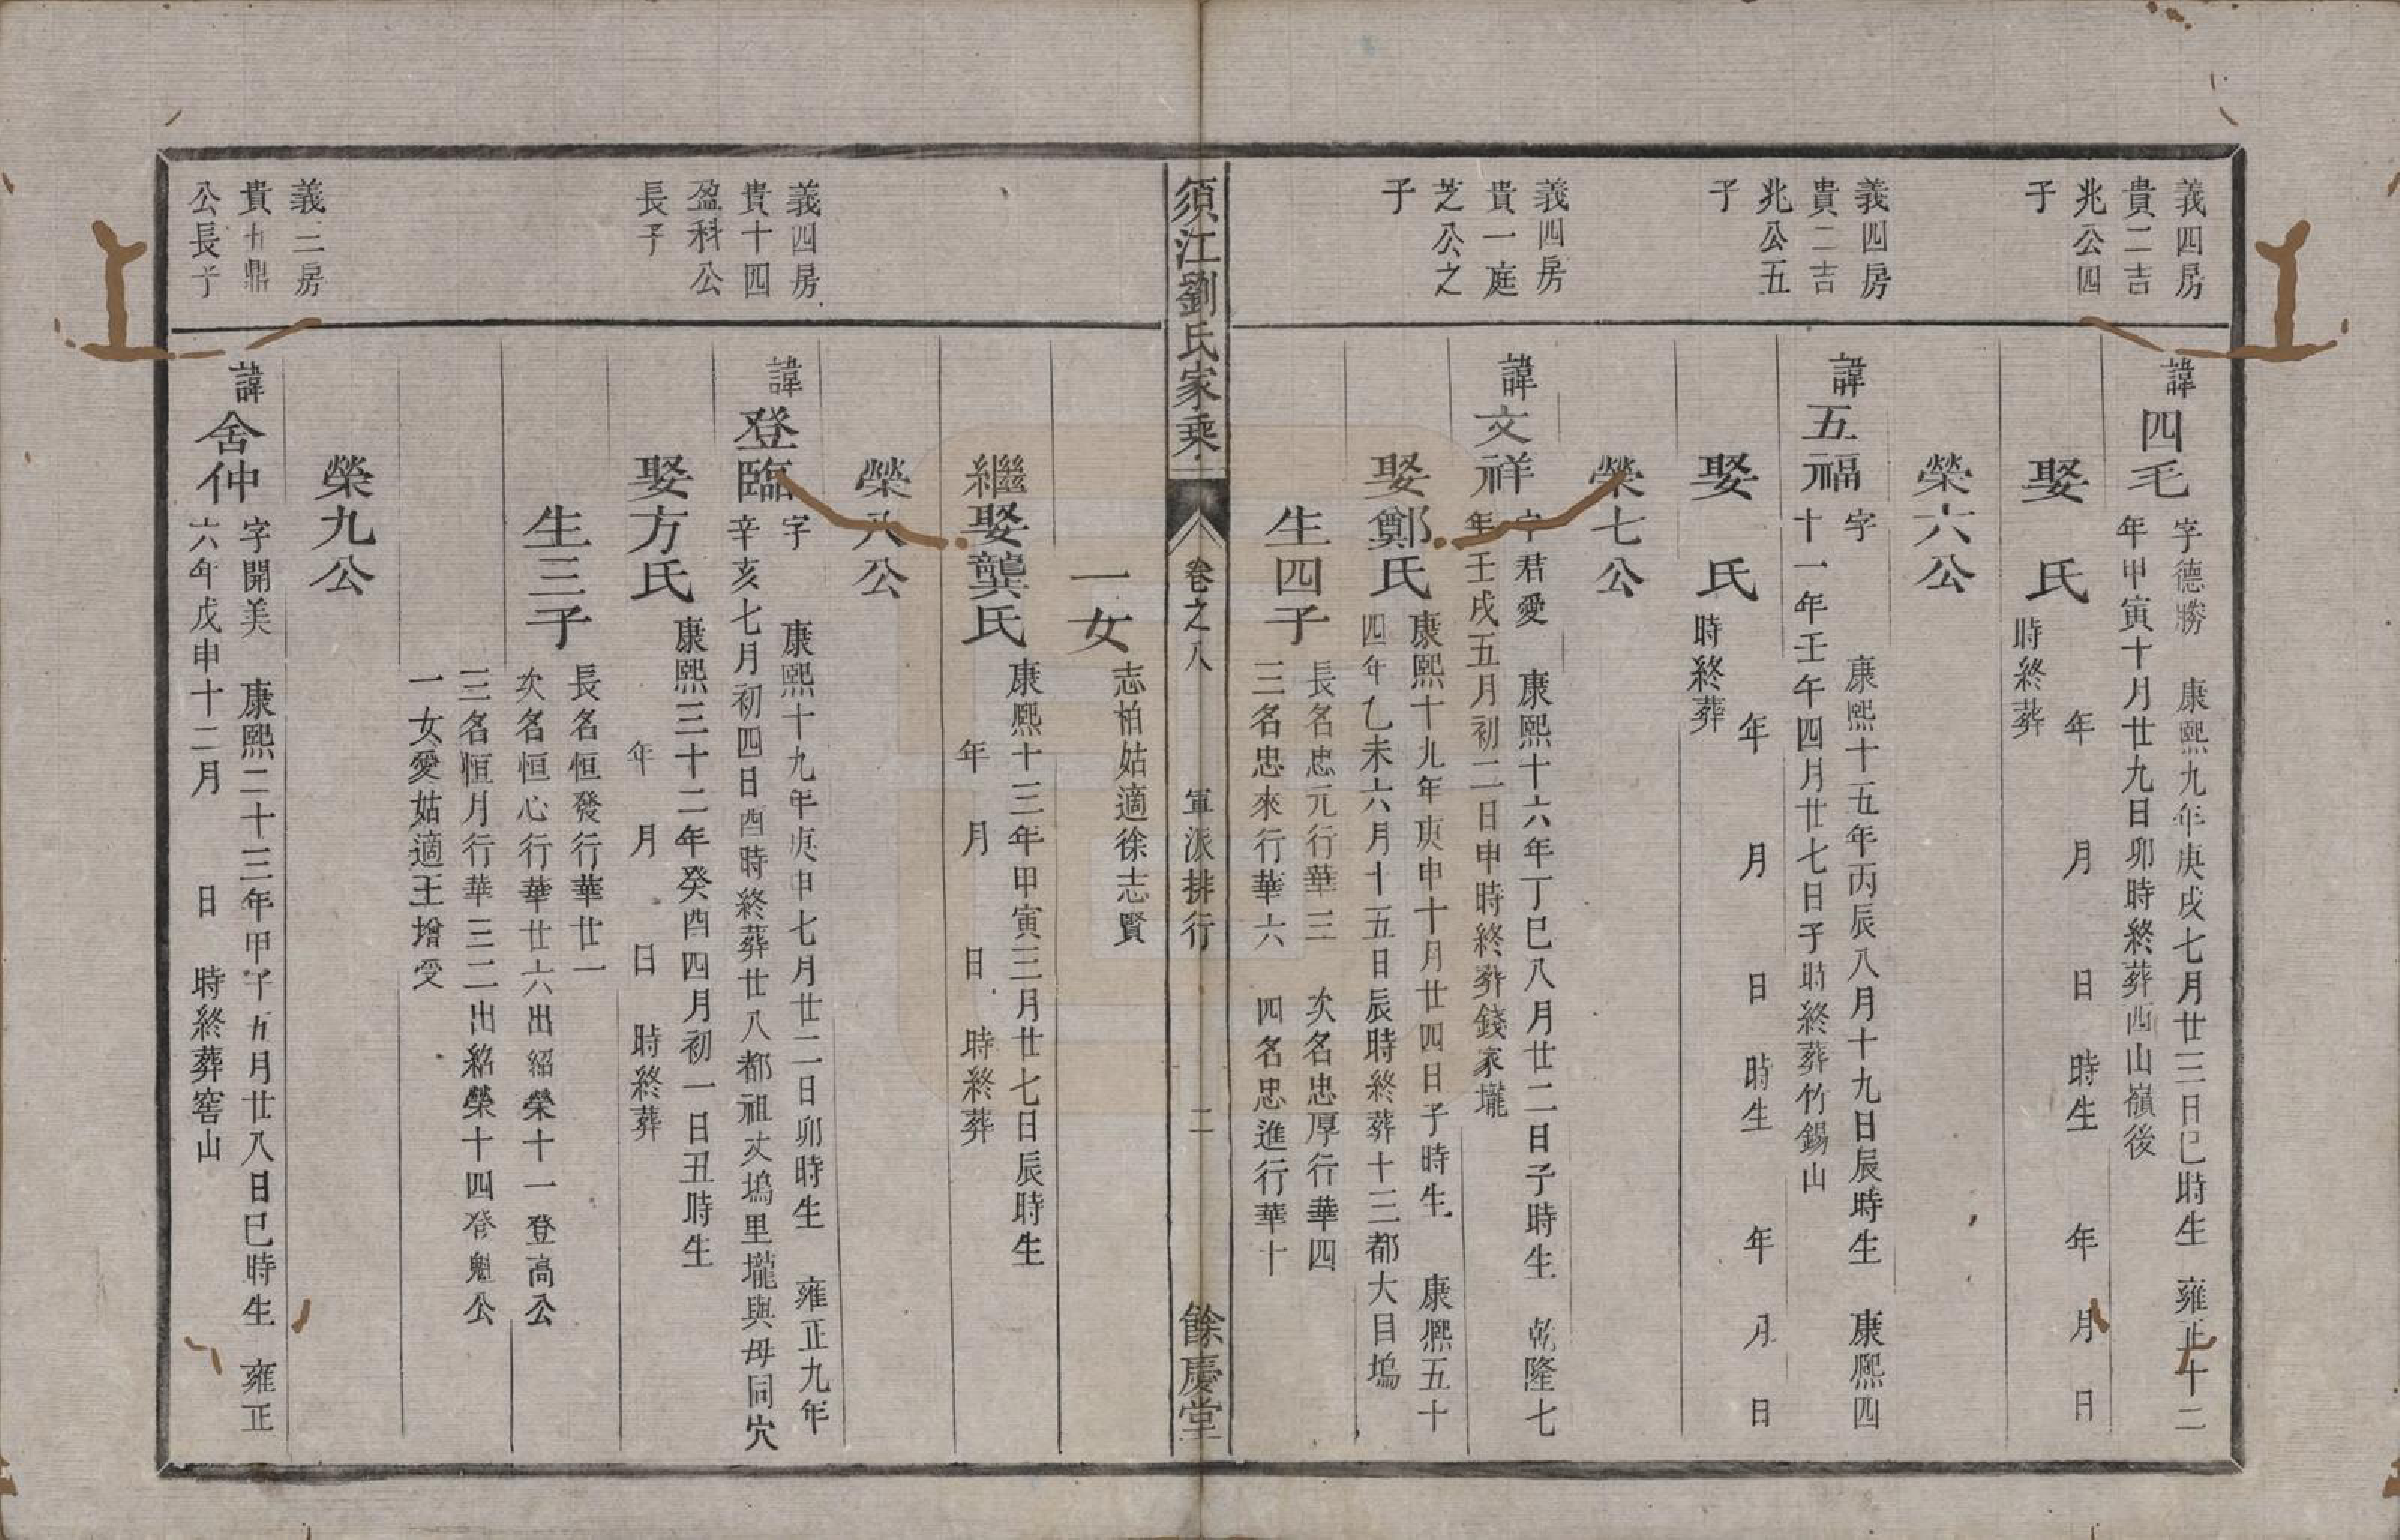 義四房
貴二吉
兆公四
子
諱四毛
字德勝 康熙九年庚戌七月廿三日巳時生 雍正十二
年甲寅十月廿九日卯時終葬西山嶺後
娶 氏
年 月 日 時生 年 月 日
時終葬
榮六公
義四房
貴二吉
兆公五
子
諱五福
字 康熙十五年丙辰八月十九日辰時生 康熙四
十一年壬午四月廿七日子時終葬竹錫山
娶 氏
年 月 日 時生 年 月 日
時終葬
榮七公
義四房
貴一庭
芝公之
子
諱文祥
字君愛 康熙十六年丁巳八月廿二日子時生 乾隆七
年壬戌五月初二日申時終葬錢家壠
娶鄭氏
康熙十九年庚申十月廿四日子時生 康熙五十
四年乙未六月十五日辰時終葬十三都大目塢
生四子
長名忠元行華三 次名忠厚行華四
三名忠來行華六 四名忠進行華十
須江劉氏家乘
卷之八 軍派排行 二
餘慶堂
一女
志柏姑適徐志賢
繼娶龔氏
康熙十三年甲寅三月廿七日辰時生
年 月 日 時終葬
榮八公
義四房
貴十四
盈科公
長子
諱登臨
字 康熙十九年庚申七月廿二日卯時生 雍正九年
辛亥七月初四日酉時終葬廿八都祖丈塢里壠與母同穴
娶方氏
康熙三十二年癸酉四月初一日丑時生
年 月 日 時終葬
生三子
長名恒發行華廿一
次名恒心行華廿六出紹榮十一登高公
三名恒月行華三二出紹榮十四登魁公
一女愛姑適王增受
榮九公
義二房
貴十鼎
公長子
諱舍仲
字開美 康熙二十三年甲子五月廿八日巳時生 雍正
六年戊申十二月 日 時終葬窖山